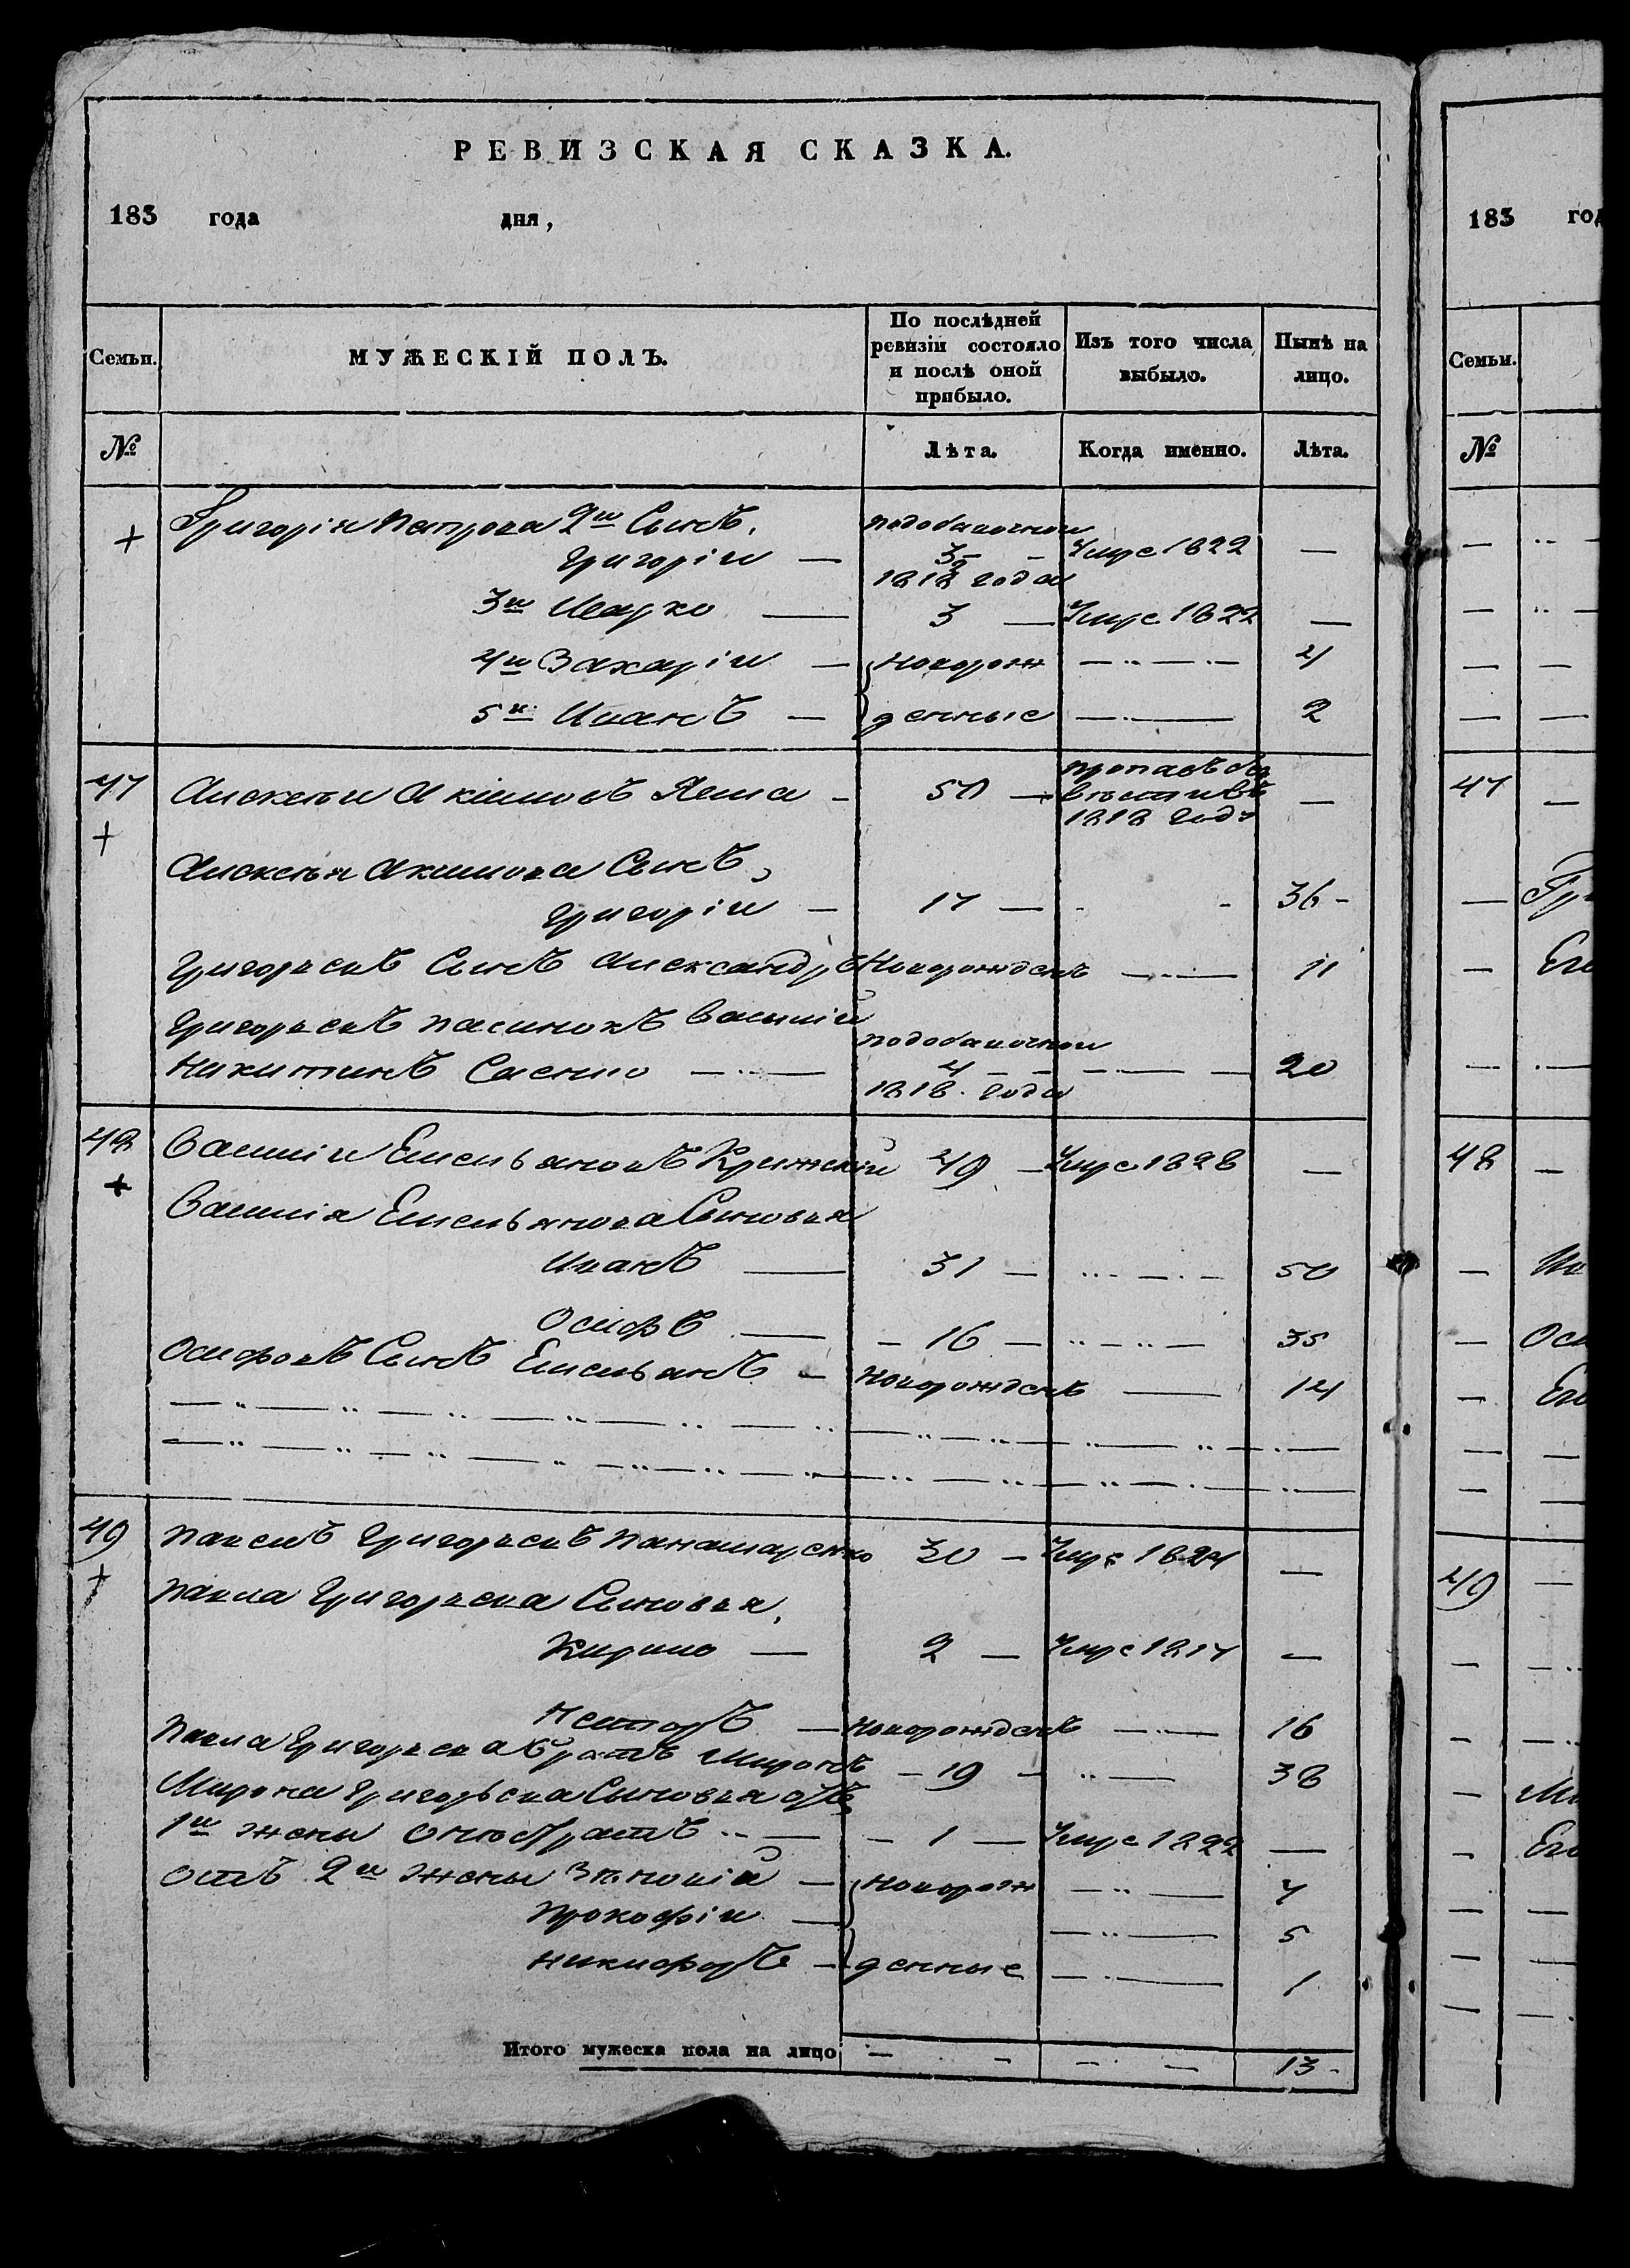 РЕВИЗСКАЯ СКАЗКА.
183 года дня,
Семьи. МУЖЕСКІЙ ПОЛЪ. По послѣдней ревизіи состояло и послѣ оной прибыло. Изъ того числа выбыло. Нынѣ на лицо.
№ Лѣта. Когда именно. Лѣта.
+ Григорія Петрова 2й Сынъ,
Григорій — по добавочной 3 1818 года Умре 1822 —
3й Марко — 3 — Умре 1822 —
4й Захарій — новорож — 4
5й Иванъ — денные — 2
47 Алексѣй Акимовъ — 50 — пропалъ безъ вѣсти въ 1818 году —
+
Алексѣя Акимова Сынъ,
Григорій — 17 — 36 -
Григорьевъ Сынъ Александръ Новорожденъ — 11
Григорьевъ пасинокъ Василій
Никитинъ — по добавочной 4 1818 года — 20
48 Василій Емельяновъ 49 — Умре 1828 —
+
Василія Емельянова Сыновья
Иванъ — 31 — 50
Осипъ — 16 — 35
Осиповъ Сынъ Емельянъ — Новорожденъ — 14
49 Павелъ Григорьевъ 30 — Умре 1824 —
+
Павла Григорьева Сыновья,
Кирило — 2 — Умре 1817 —
Несторъ — Новорожденъ — 16
Павла Григорьева братъ Миронъ — 19 — 38
Мирона Григорьева Сыновья отъ
1й жены — 1 — Умре 1822 —
Отъ 2й жены Зѣновій — новорож — 7
Прокофій — 5
Никифоръ — денные — 1
Итого мужеска пола на лицо — 13 -
183 год
Семьи.
№
47
48
49